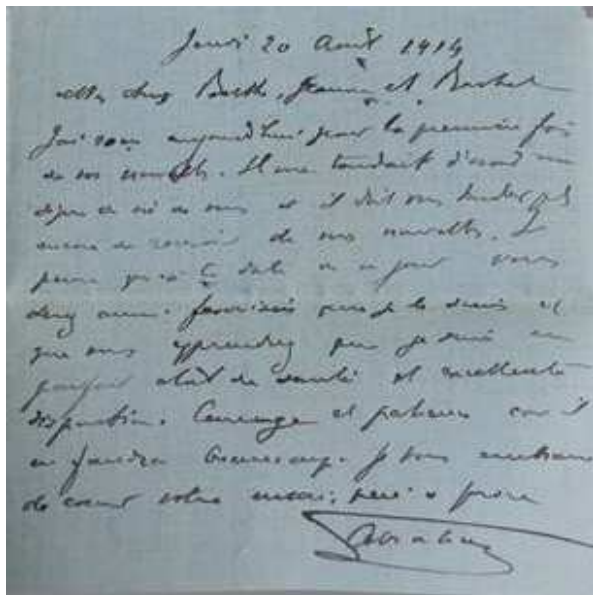 Jeudi 20 Août 1914
Mes chers Berthe, Jeanne et
J'ai reçu aujourd'hui pour la première fois
de vos nouvelles. Il me tardait d'avoir
et il doit vous tarder
encore de recevoir de mes nouvelles. Je
pense qu'à la date de ce jour vous
serez aussi favorisés que je le suis et
que vous apprendrez que je suis en
parfait état de santé et excellente
disposition. Courage et patience car il
en faudra beaucoup. Je vous embrasse
de coeur votre mari, père et frère